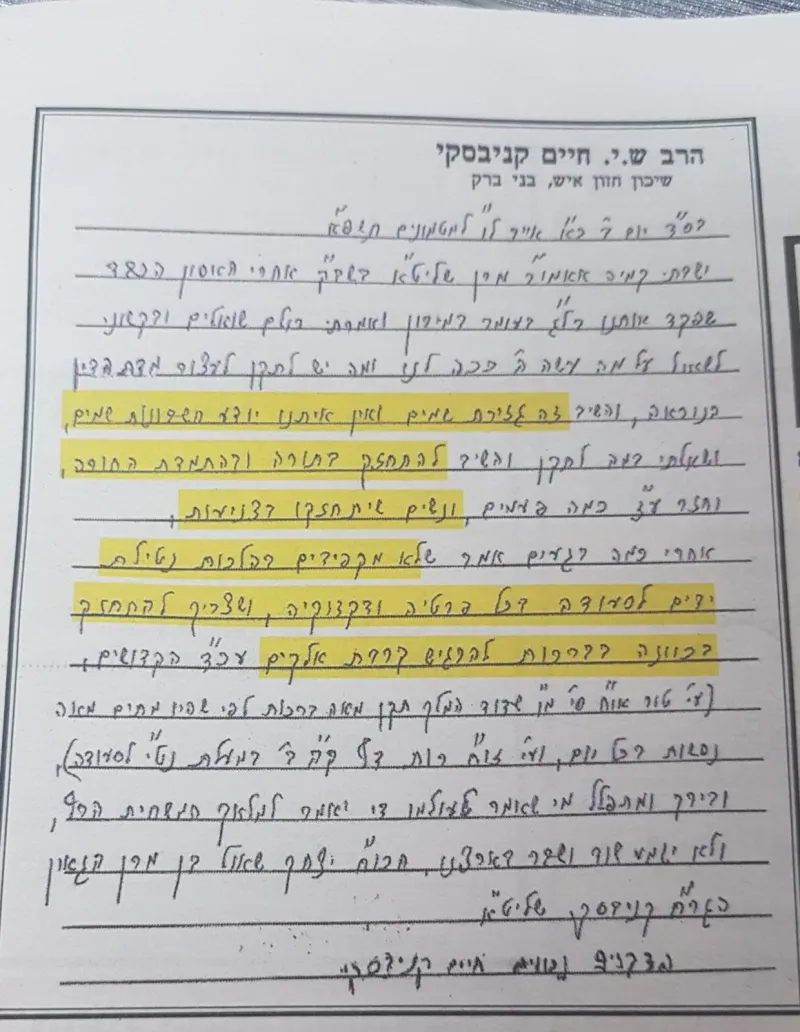 הרב ש.י. חיים קניבסקי
שיכון חזון איש, בני ברק
בס"ד יום ב' כ"א אייר ל"ו למטמונים תשפ"א
ישבתי קמיה אאמו"ר מרן שליט"א בשב"ק אחרי האסון הכבד
שפקד אותנו בל"ג בעומר במירון ואמרתי כולם שואלים ובקשוני
לשאול על מה עשה ה' ככה לנו ומה יש לתקן לעצור מדת הדין
הנוראה, והשיב זה גזירת שמים ואין איתנו יודע חשבונות שמים,
ושאלתי במה לתקן והשיב להתחזק בתורה ובהתמדת התורה,
וחזר ע"ז כמה פעמים, ונשים שיתחזקו בצניעות,
אחרי כמה רגעים אמר שלא מקפידים בהלכות נטילת
ידים לסעודה בכל פרטיה ודקדוקיה, ושצריך להתחזק
בכוונה בברכות להרגיש קרבת אלקים עכ"ד הקדושים,
(ע' טור או"ח סי' מ"ו שדוד המלך תקן מאה ברכות לפי שהיו מתים מאה
נפשות בכל יום, וע' זוה"ח רות דף ק"ה ב' במעלת נט"י לסעודה),
ובירך ומתפלל מי שאומר לעולמו די יאמר למלאך המשחית הרף,
ולא ישמע שוד ושבר בארצנו, הכו"ח יצחק שאול בן מרן הגאון
הגר"ח קניבסקי שליט"א
הדברים נכונים חיים קניבסקי